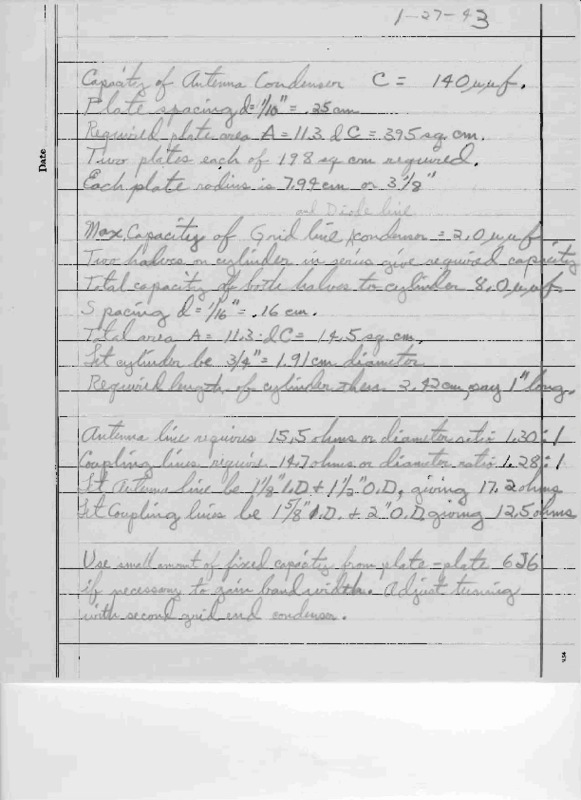 1-27-43
Capacity of Antenna Condenser C = 140 uuf.
Plate spacing d = 1/10" = .25 cm
Required plate area A = 11.3 d C = 395 sq. cm.
Two plates each of 198 sq cm required.
Each plate radius is 7.94 cm or 3 1/8"
and Diode line
Max. Capacity of Grid line condenser = 2.0 uuf
Two halves on cylinder in series give required capacity
Total capacity of both halves to cylinder 8.0 uuf
Spacing d = 1/16" = .16 cm.
Total area A = 11.3·dC = 14.5 sq. cm.
Let cylinder be 3/4" = 1.91 cm diameter
Required length of cylinder then 2.42 cm, say 1" long.
Antenna line requires 15.5 ohms or diameter ratio 1.30:1
Coupling lines require 14.7 ohms or diameter ratio 1.28:1
Let Antenna line be 1 1/8" I.D + 1 1/2" O.D, giving 17.2 ohms
Let Coupling lines be 1 5/8" I.D. + 2" O.D. giving 12.5 ohms
Use small amount of fixed capacity from plate-plate 6J6
if necessary to gain bandwidth. Adjust tuning
with second grid end condenser.
Date